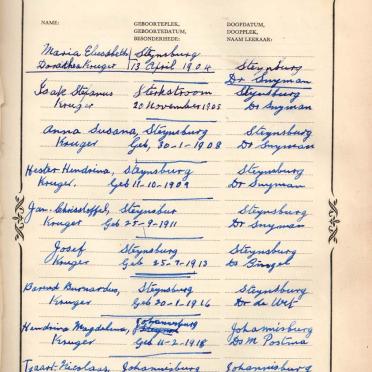 NAME: GEBOORTEPLEK, GEBOORTEDATUM, BESONDERHEDE: DOOFDATUM, DOOPPLEK, NAAM LEERAAR:
Maria Elizabeth Steynsburg
Dorothea Kruger 13 April 1904 Steynburg
Dr Snyman
Isak Stefanus Sterkstroom Steynsburg
Kruger 20 November 1905 Dr Snyman
Anna Susana, Steynsburg Steynsburg
Kruger Geb, 30-1-1908 Dr Snyman
Hester Hendrina, Steynsburg Steynsburg
Kruger. Geb 11-10-1909 Dr Snyman
Jan Christoffel, Steynsbur Steynsburg
Kruger Geb 25-9-1911 Dr Snyman
Josef Steynsburg Steynsburg
Kruger Geb 25-7-1913 Ds
Barend Burnardus, Steynsburg Steynsburg
Kruger Geb 20-1-1916 Dr de Wet
Hendrina Magdalena, Johannisburg Johannisburg
Kruger Geb 11-2-1918 Ds M Postma
Tjaart Nicolaas Johannisburg Johannisburg